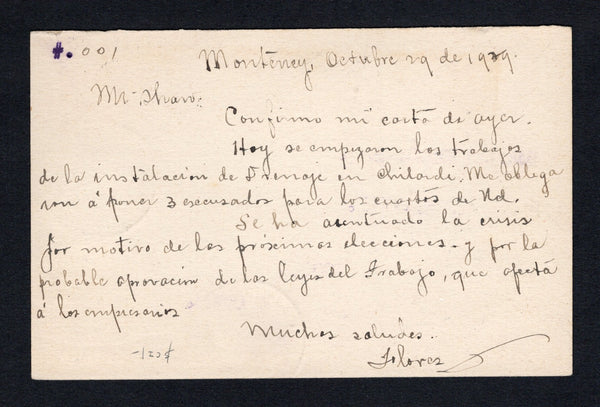 #. 001
Monterrey, Octubre 29 de 1929.
Mr. Shaw:
Confirmo mi carta de ayer.
Hoy se empezaron los trabajos
de la instalacion de Drenaje en Chilardi. Me obliga
ron á poner 3 escusados para los cuartos de Ud.
Se ha acentuado la crisis
por motivo de las proximas elecciones - y por la
probable aprovacion de las leyes del Trabajo, que afecta
á los empresarios
Muchos saludes.
Flores